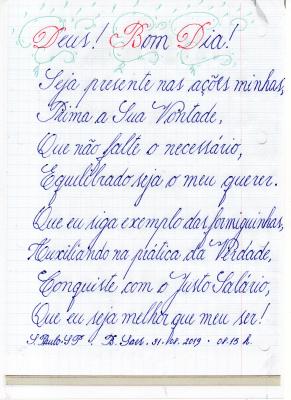 Deus! Bom Dia!
Seja presente nas ações minhas,
Prima a Sua Vontade,
Que não falte o necessário,
Equilibrado seja o meu querer.
Que eu siga exemplo das formiguinhas,
Auxiliando na prática da Verdade,
Conquiste com o Justo Salário,
Que eu seja melhor que meu ser!
S. Paulo-SP 31.08.2019 - 08:13 h.